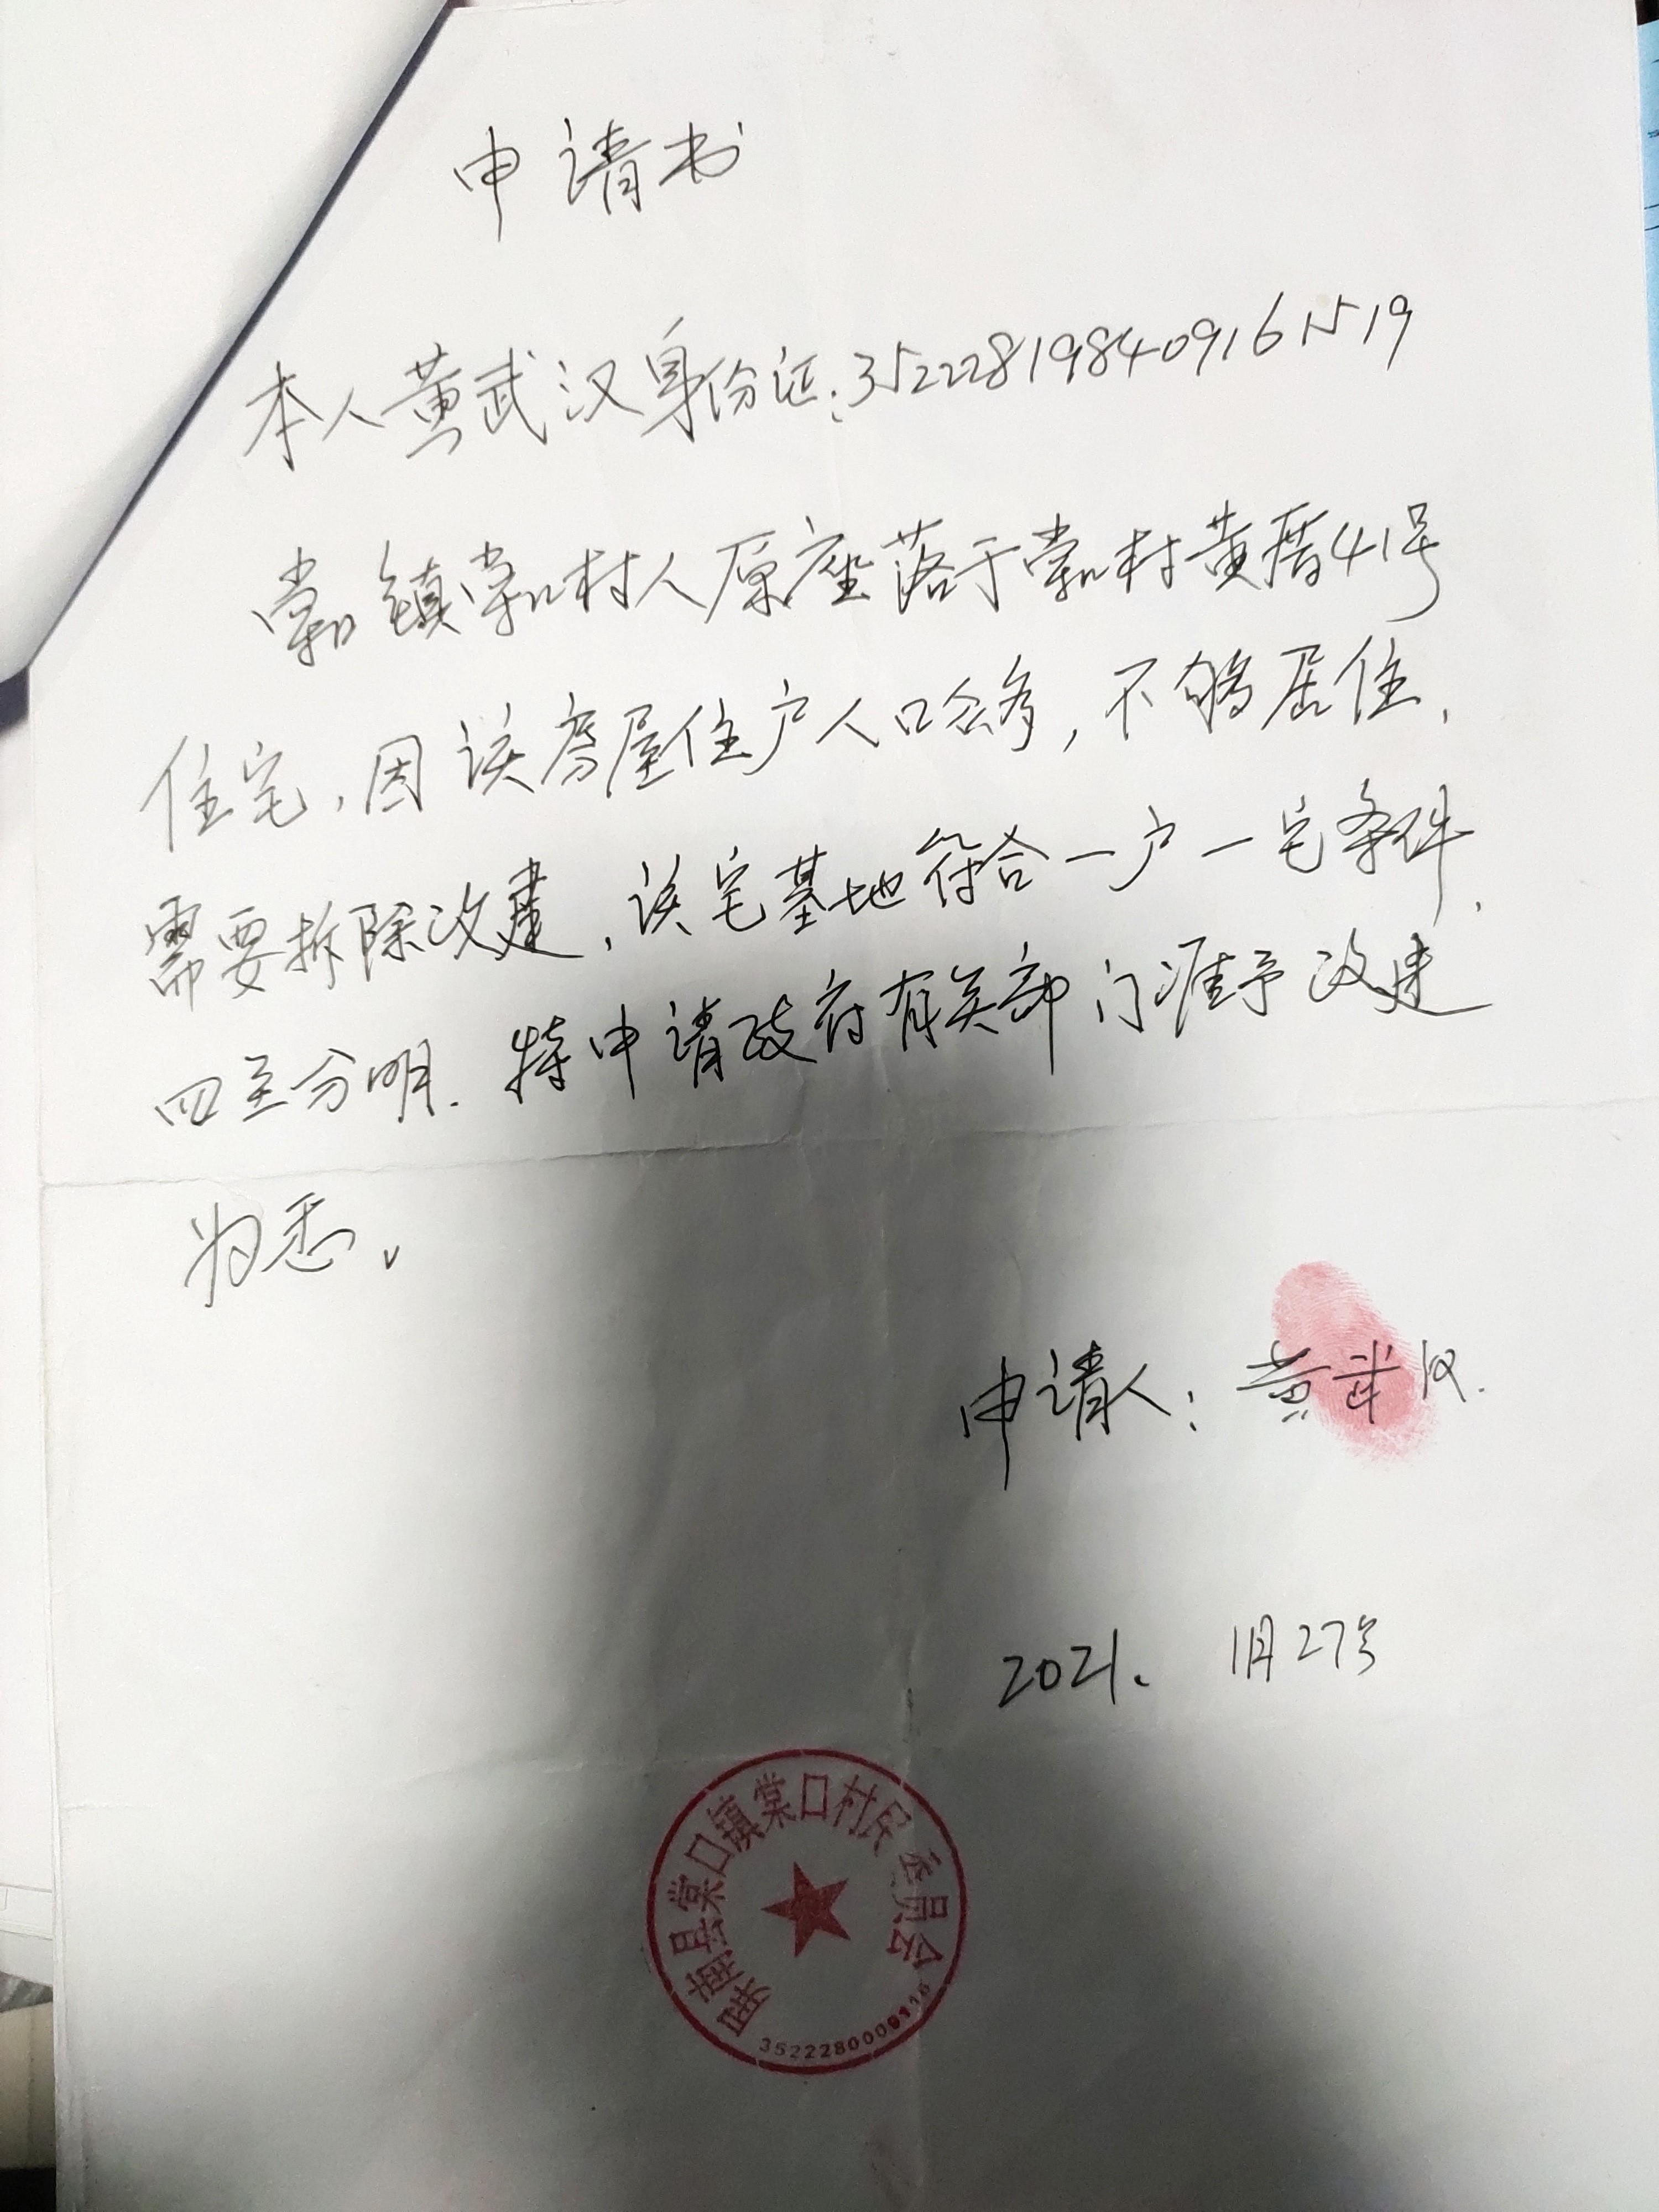 申请书
本人黄武汉身份证:352228198409161519
棠口镇棠口村人原座落于棠口村黄厝41号
住宅,因该房屋住户人口众多,不够居住,
需要拆除改建,该宅基地符合一户一宅条件,
四至分明.特申请政府有关部门准予改建
为盼。
申请人:黄武汉.
2021. 1月27号
屏南县棠口镇棠口村民委员会